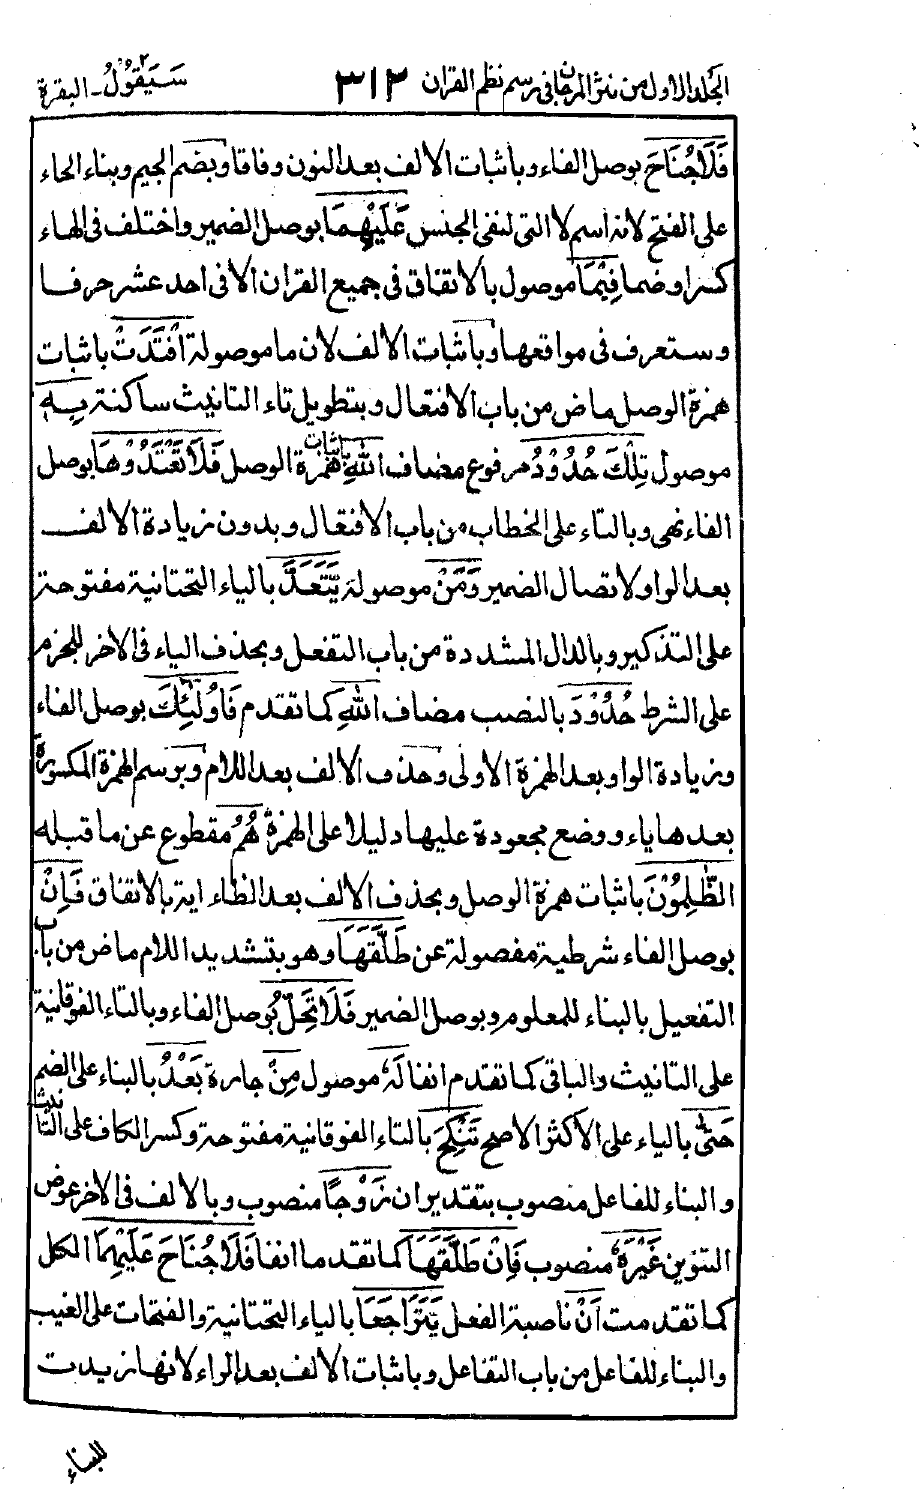 الجلد الاول من نثر المرجان فى رسم نظم القران ٣١٢ سَيَقُوْلُ ٢ ـ البقرة
فَلَا جُنَاحَ بوصل الفاء وباثبات الالف بعد النون وفاقا وبضم الجيم وبناء الحاء
على الفتح لانه اسم لا التى لنفى الجنس عَلَيْهِمَا بوصل الضمير واختلف فى الهاء
كسرا وضما فِيْمَا موصول بالاتفاق فى جميع القران الا فى احد عشر حرفا
وستعرف فى مواقعها وباثبات الالف لان ما موصولة افْتَدَتْ باثبات
همزة الوصل ماض من باب الافتعال وبتطويل تاء التانيث ساكنة بِهٖ
موصول تِلْكَ حُدُوْدُ مرفوع مضاف اللّٰهِ باثبات همزة الوصل فَلَا تَعْتَدُوْهَا بوصل
الفاء نهى وبالتاء على الخطاب من باب الافتعال وبدون زيادة الالف
بعد الواو لاتصال الضمير وَمَنْ موصولة يَّتَعَدَّ بالياء التحتانية مفتوحة
على التذكير وبالدال المشددة من باب التفعل وبحذف الياء فى الاخر للجزم
على الشرط حُدُوْدَ بالنصب مضاف اللّٰهِ كما تقدم فَاُولٰٓئِكَ بوصل الفاء
وزيادة الواو بعد الهمزة الاولى وحذف الالف بعد اللام وبرسم الهمزة المكسورة
بعدها ياء ووضع مجعودة عليها دليلا على الهمزة هُمُ مقطوع عن ما قبله
الظّٰلِمُوْنَ باثبات همزة الوصل وبحذف الالف بعد الظاء اية بالاتفاق فَاِنْ
بوصل الفاء شرطية مفصولة عن طَلَّقَهَا وهو بتشديد اللام ماض من باب
التفعيل بالبناء للمعلوم وبوصل الضمير فَلَا تَحِلُّ بوصل الفاء وبالتاء الفوقانية
على التانيث والباقى كما تقدم انفا لَهٗ موصول مِنْ جارة بَعْدُ بالبناء على الضم
حَتّٰى بالياء على الاكثر الاصح تَنْكِحَ بالتاء الفوقانية مفتوحة وكسر الكاف على التانيث
والبناء للفاعل منصوب بتقدير ان زَوْجًا منصوب وبالالف فى الاخر عوض
التنوين غَيْرَهٗ منصوب فَاِنْ طَلَّقَهَا كما تقدما انفا فَلَا جُنَاحَ عَلَيْهِمَا الكل
كما تقدمت اَنْ ناصبة الفعل يَّتَرَاجَعَا بالياء التحتانية والفتحات على الغيب
والبناء للفاعل من باب التفاعل وباثبات الالف بعد الراء لانها زيدت
للبناء